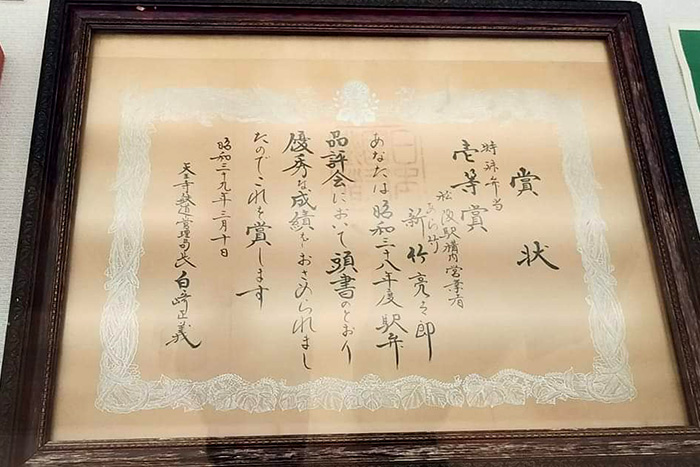 賞状
特殊弁当
壱等賞
松阪駅構内営業者
あら竹
新竹亮太郎
あなたは昭和三十八年度駅弁
品評会において頭書のとおり
優秀な成績をおさめられまし
たのでこれを賞します
昭和三十九年三月十日
天王寺鉄道管理局長白崎正義